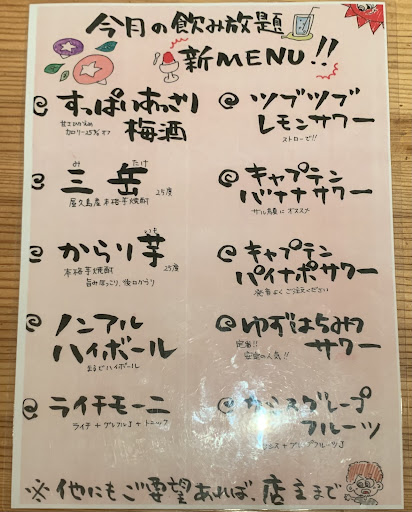 今月の飲み放題
新MENU!!
すっぱいあっさり
梅酒
甘さひかえめ
カロリー25%オフ
みたけ
三岳
屋久島産本格芋焼酎 25度
いも
からり芋
本格芋焼酎 25度
旨みほっこり、後口からり
ノンアル
ハイボール
まるでハイボール
ライチモーニ
ライチ+グレフルJ+トニック
ツブツブ
レモンサワー
ストローで!!
キャプテン
バナナサワー
サル顔にオススメ
キャプテン
パイナポサワー
発音よくご注文ください
ゆずはちみつ
サワー
定番!!
安定の人気!!
カシスグレープ
フルーツ
カシス+グレープフルーツJ
※他にもご要望あれば、店主まで